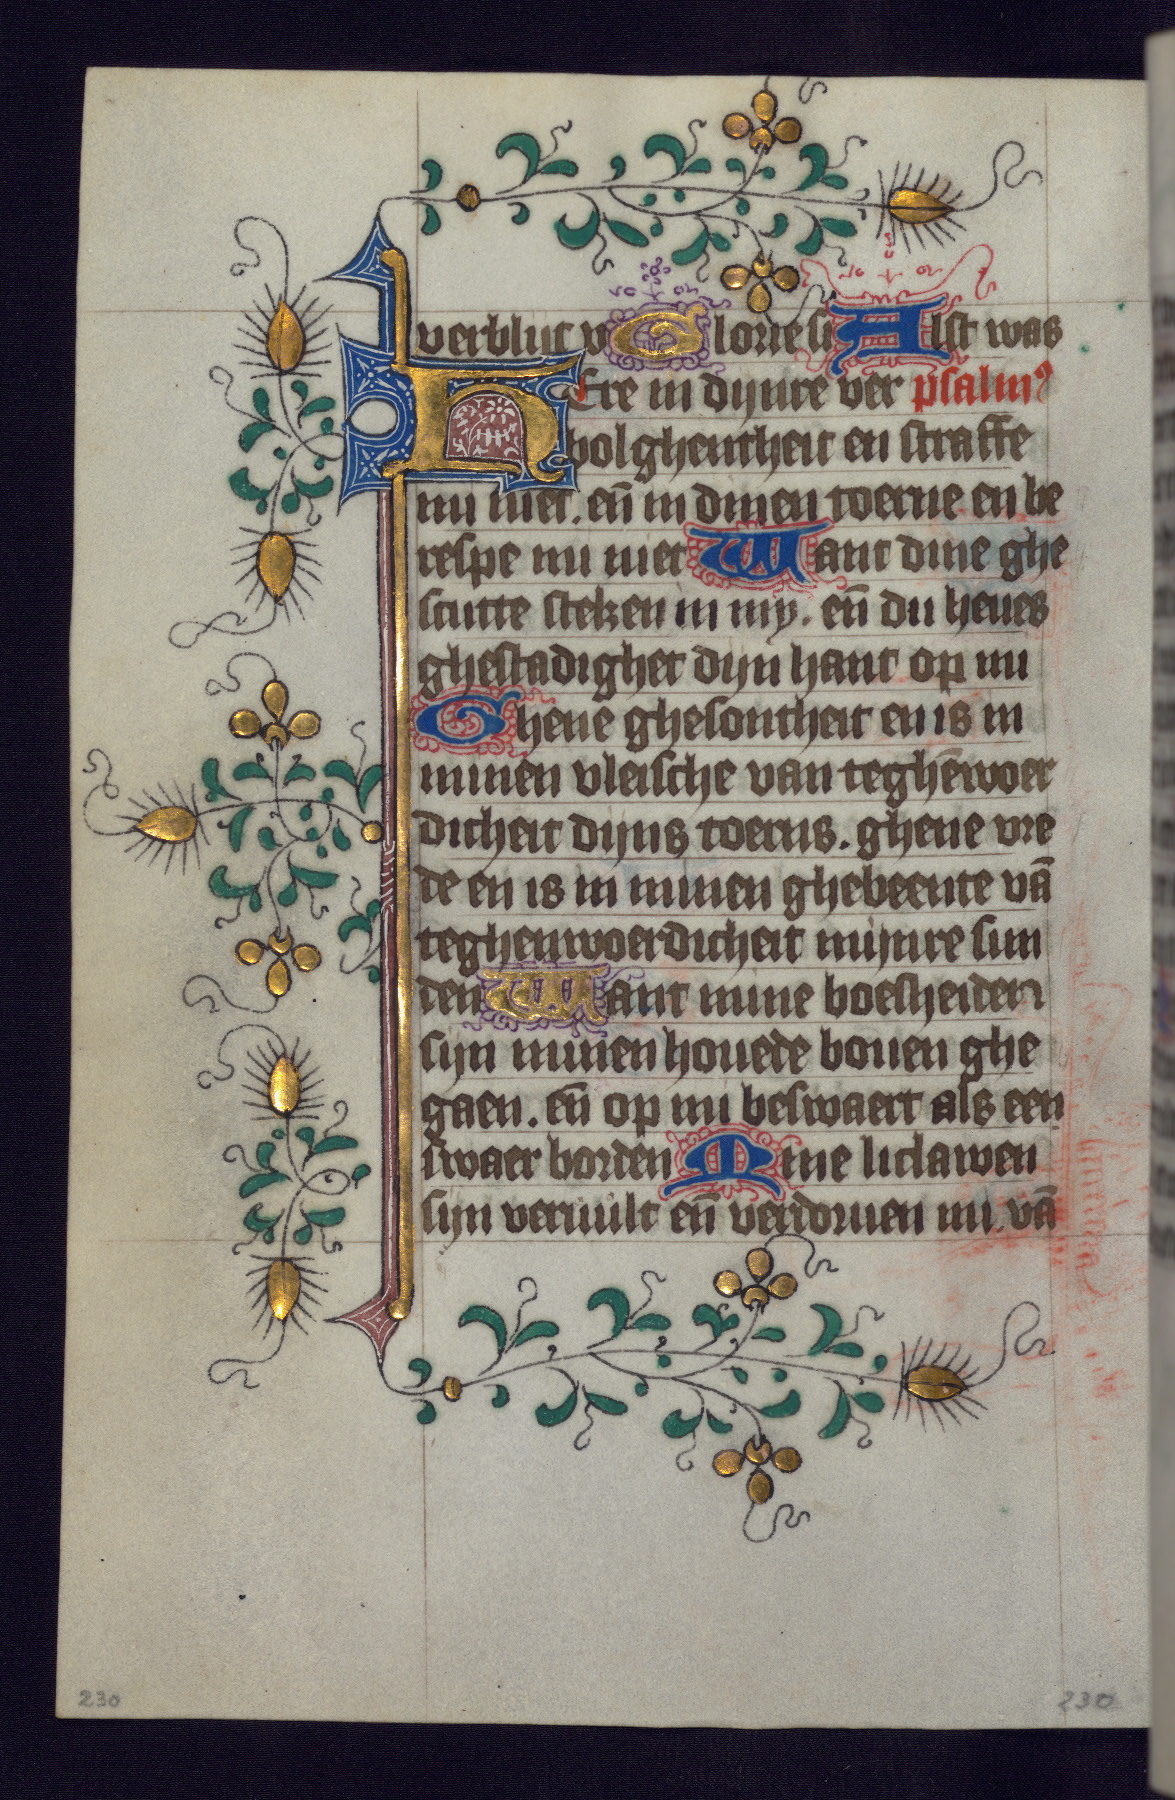 verblijt v Glorie si Alst was
HEre in dijnre ver psalmꝰ
bolghentheit en straffe
mi niet. en̄ in dinen toerne en be
respe mi niet Want dine ghe
scutte steken in my. en̄ du heues
ghestadighet dijn hant op mi
Ghene ghesontheit en is in
minen vleische van teghēwoer
dicheit dijns toerns. ghene vre
de en is in minen ghebeente vā
teghenwoerdicheit mijnre sun
den Want mine boesheiden
sijn minen houede bouen ghe
gaen. en̄ op mi beswaert als een
swaer borden Mine liclawen
sijn veruuilt en̄ verdoruen mi. vā
230 230